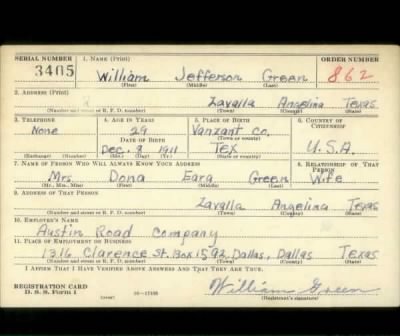 SERIAL NUMBER 1. NAME (Print) ORDER NUMBER
3405 William Jefferson Green 862
(First) (Middle) (Last)
2. ADDRESS (Print)
Zavalla Angelina Texas
(Number and street or R. F. D. number) (Town) (County) (State)
3. TELEPHONE 4. AGE IN YEARS 5. PLACE OF BIRTH 6. COUNTRY OF CITIZENSHIP
None 29 Vanzant Co.
DATE OF BIRTH (Town or county)
Dec. 9 1911 Tex U.S.A.
(Exchange) (Number) (Mo.) (Day) (Yr.) (State or country)
7. NAME OF PERSON WHO WILL ALWAYS KNOW YOUR ADDRESS 8. RELATIONSHIP OF THAT PERSON
Mrs Dona Eara Green Wife
(Mr., Mrs., Miss) (First) (Middle) (Last)
9. ADDRESS OF THAT PERSON
Zavalla Angelina Texas
(Number and street or R. F. D. number) (Town) (County) (State)
10. EMPLOYER'S NAME
Austin Road Company
11. PLACE OF EMPLOYMENT OR BUSINESS
1316 Clarence St. Box 1592, Dallas, Dallas Texas
(Number and street or R. F. D. number) (Town) (County) (State)
I AFFIRM THAT I HAVE VERIFIED ABOVE ANSWERS AND THAT THEY ARE TRUE.
REGISTRATION CARD William Green
D. S. S. Form 1 (Registrant's signature)